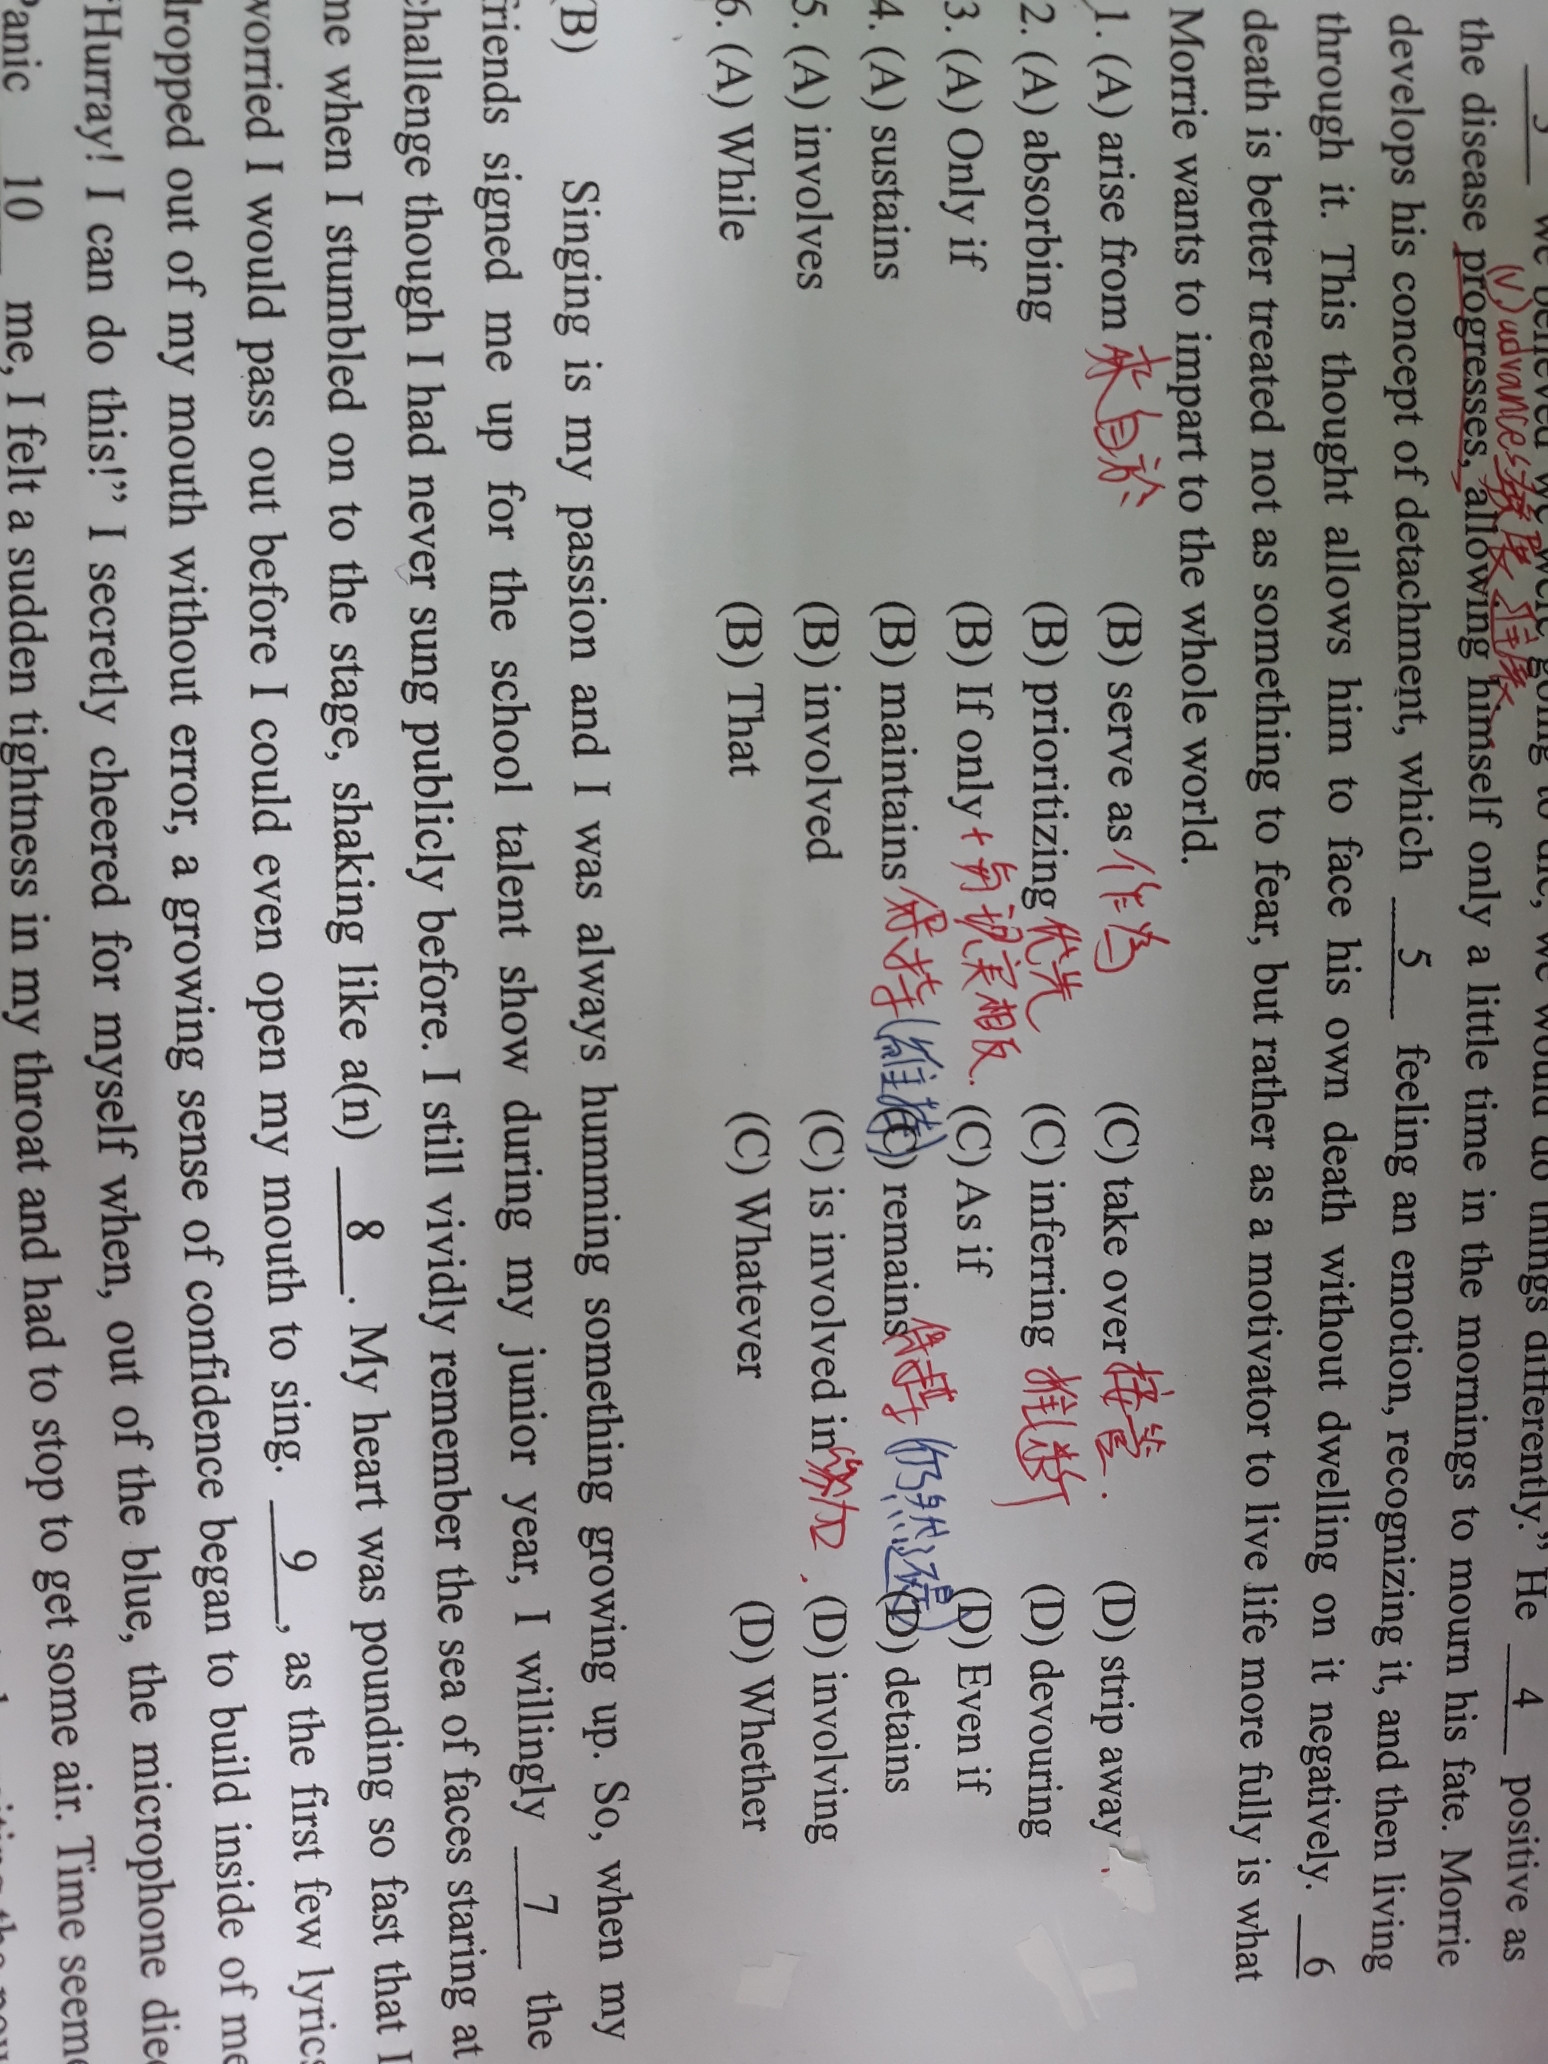 3 we believed we were going to die, we would do things differently.” He 4 positive as
(v.) advances 發展 進展
the disease progresses, allowing himself only a little time in the mornings to mourn his fate. Morrie
develops his concept of detachment, which 5 feeling an emotion, recognizing it, and then living
through it. This thought allows him to face his own death without dwelling on it negatively. 6
death is better treated not as something to fear, but rather as a motivator to live life more fully is what
Morrie wants to impart to the whole world.
1. (A) arise from 來自於 (B) serve as 作為 (C) take over 接管. (D) strip away
2. (A) absorbing (B) prioritizing 优先 (C) inferring 推斷 (D) devouring
3. (A) Only if (B) If only + 与现实相反. (C) As if (D) Even if
4. (A) sustains (B) maintains 保持 (維持) (C) remains 保持 (仍然是) (D) detains
5. (A) involves (B) involved (C) is involved in 參加 (D) involving
6. (A) While (B) That (C) Whatever (D) Whether
(B) Singing is my passion and I was always humming something growing up. So, when my
friends signed me up for the school talent show during my junior year, I willingly 7 the
challenge though I had never sung publicly before. I still vividly remember the sea of faces staring at
me when I stumbled on to the stage, shaking like a(n) 8 . My heart was pounding so fast that I
worried I would pass out before I could even open my mouth to sing. 9 , as the first few lyrics
dropped out of my mouth without error, a growing sense of confidence began to build inside of me
“Hurray! I can do this!” I secretly cheered for myself when, out of the blue, the microphone died
Panic 10 me, I felt a sudden tightness in my throat and had to stop to get some air. Time seem